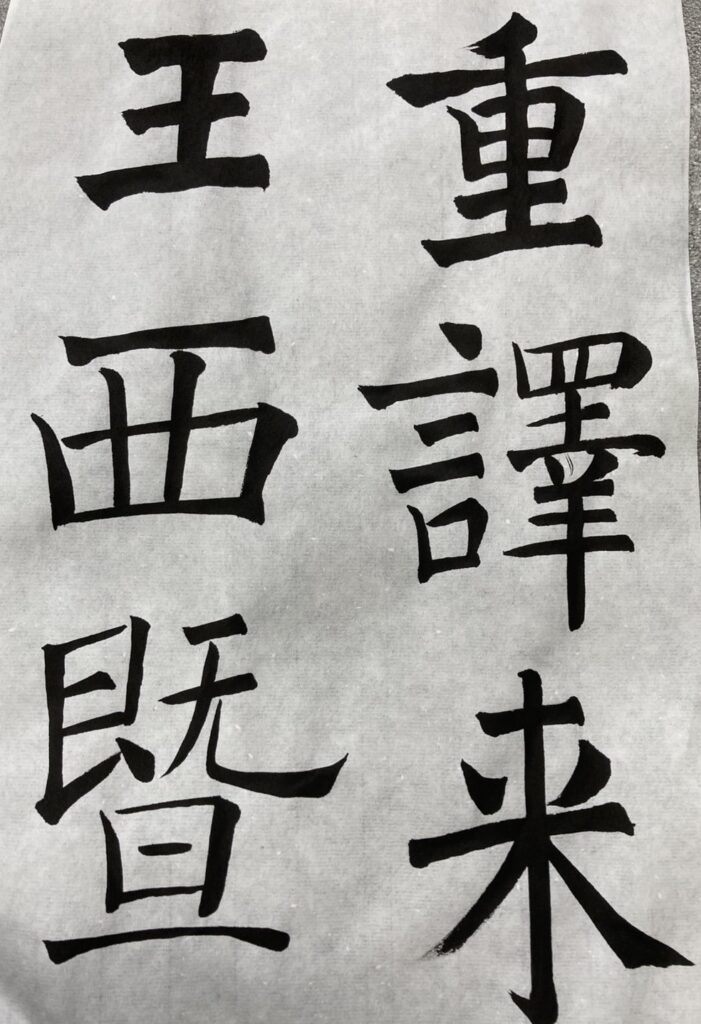 重譯来
王西暨